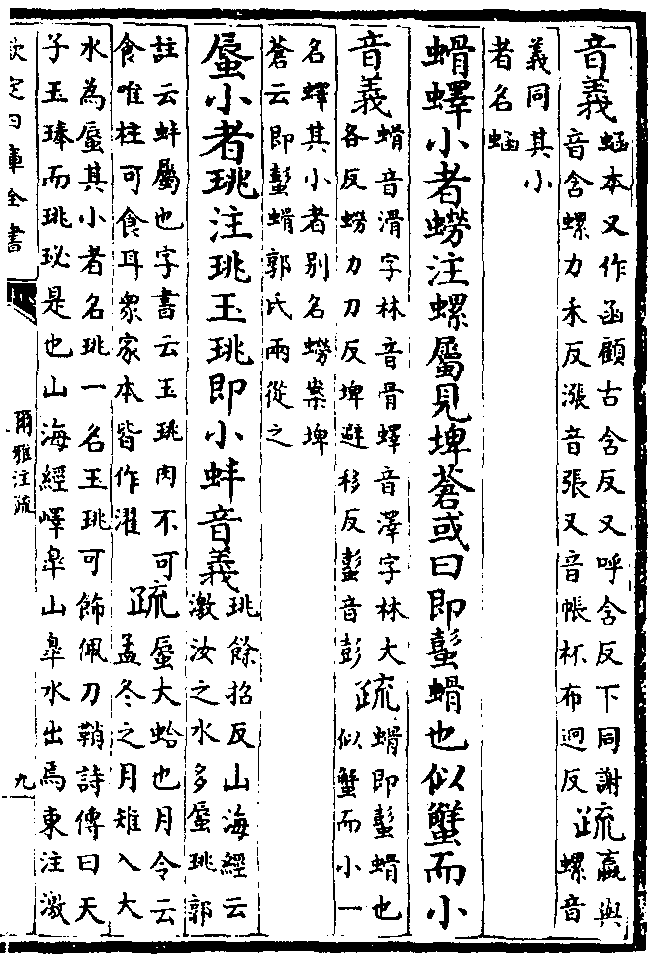 音義蜬本又作函顧古含反又呼含反下同謝
音含螺力禾反漲音張又音帳杯布迥反疏蠃與
螺音
義同其小
者名蜬
螖蠌小者蟧注螺屬見埤蒼或曰即蟚螖也似蟹而小
音義螖音滑字林音骨蠌音澤字林大
各反蟧力刀反埤避移反蟚音彭疏螖即蟚螖也
似蟹而小一
名蠌其小者别名蟧案埤
蒼云即蟚螖郭氏兩從之
蜃小者珧注珧玉珧即小蚌音義珧餘招反山海經云
激汝之水多蜃珧郭
註云蚌屬也字書云玉珧肉不可
食唯柱可食耳眾家本皆作濯疏蜃大蛤也月令云
孟冬之月雉入大
水為蜃其小者名珧一名玉珧可飾佩刀鞘詩傳曰天
子玉琫而珧珌是也山海經嶧臯山臯水出焉東注激
欽定四庫全書
爾雅注疏
九